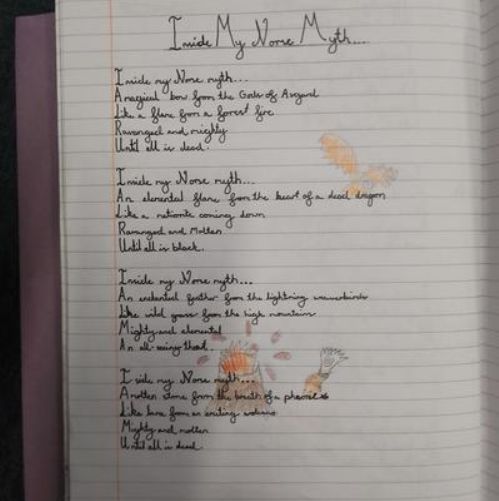 Inside My Norse Myth....
Inside my Norse myth...
A magical bow from the Gods of Asgard
Like a flare from a forest fire
Ravanged and mighty
Until all is dead.
Inside my Norse myth...
An elemental flare from the heart of a dead dragon
Like a coming down
Ravanged and Molten
Until all is black.
Inside my Norse myth...
An enchanted feather from the lightning
Like wild grass from the high mountains
Mighty and elemental
An all-seeing
I side my Norse myth...
A molten stone from the breath of a phoenix
Like lava from an
Mighty and molten
Until all is dead.